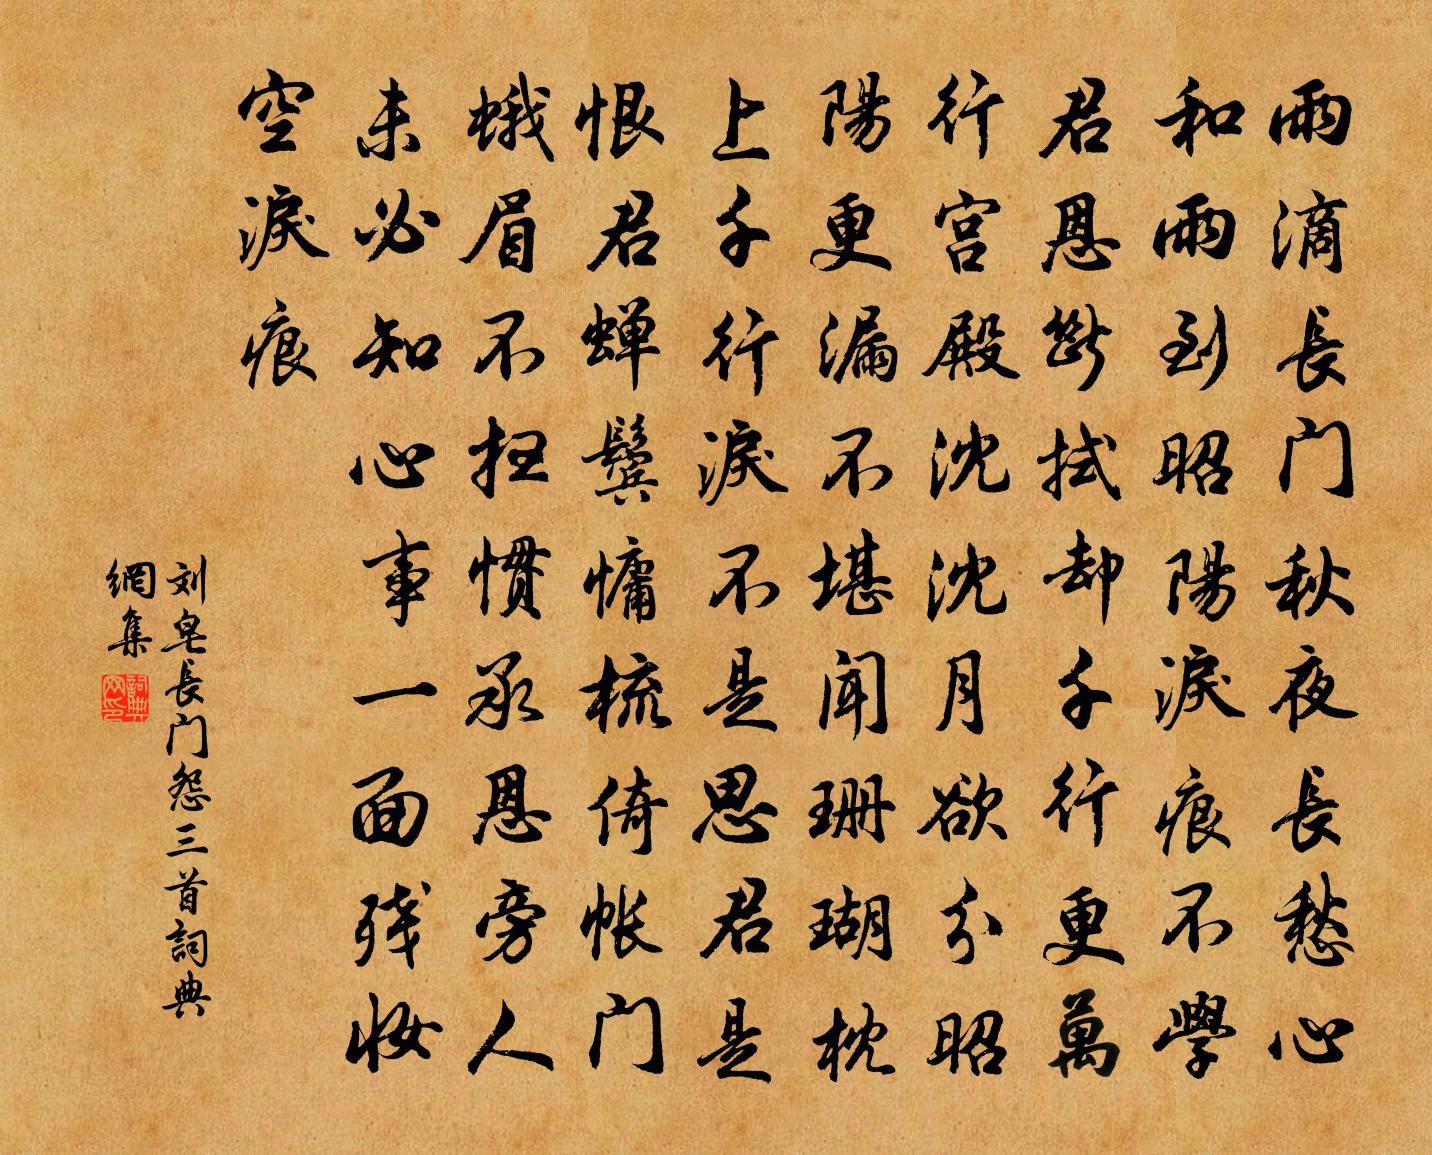 雨滴長门秋夜長愁心
和雨到昭陽淚痕不學
君恩斷拭却千行更萬
行宫殿沈沈月欲分昭
陽更漏不堪闻珊瑚枕
上千行淚不是思君是
恨君蝉鬓慵梳倚帐门
蛾眉不扫惯承恩旁人
未必知心事一面残妆
空淚痕
刘皂長门怨三首詞典
網集
詞典网印